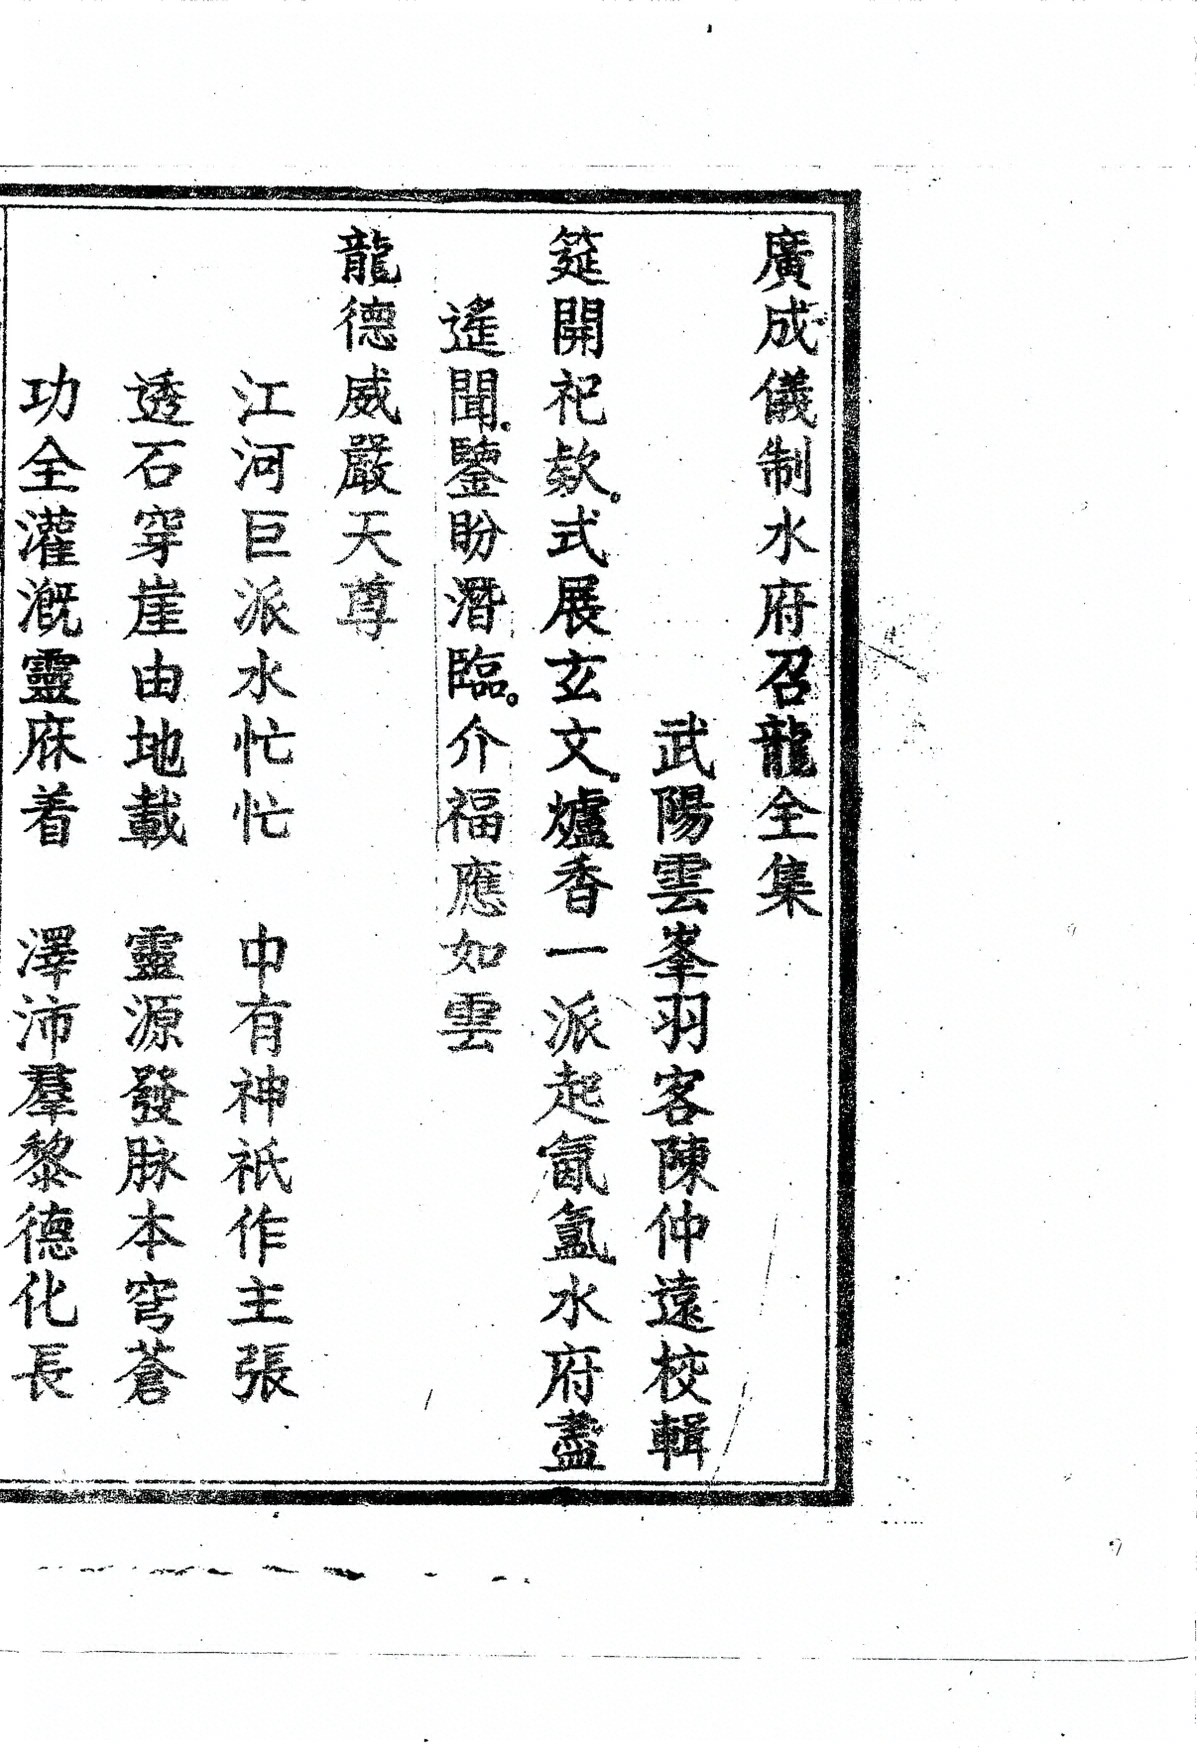 廣成儀制水府召龍全集
武陽雲峯羽客陳仲遠校輯
筵開祀欵。式展玄文。爐香一派起氤氳水府盡
遙聞。鑒盼潛臨。介福應如雲
龍德威嚴天尊
江河巨派水忙忙　中有神祇作主張
透石穿崖由地載　靈源發脉本穹蒼
功全灌溉靈庥着　澤沛羣黎德化長